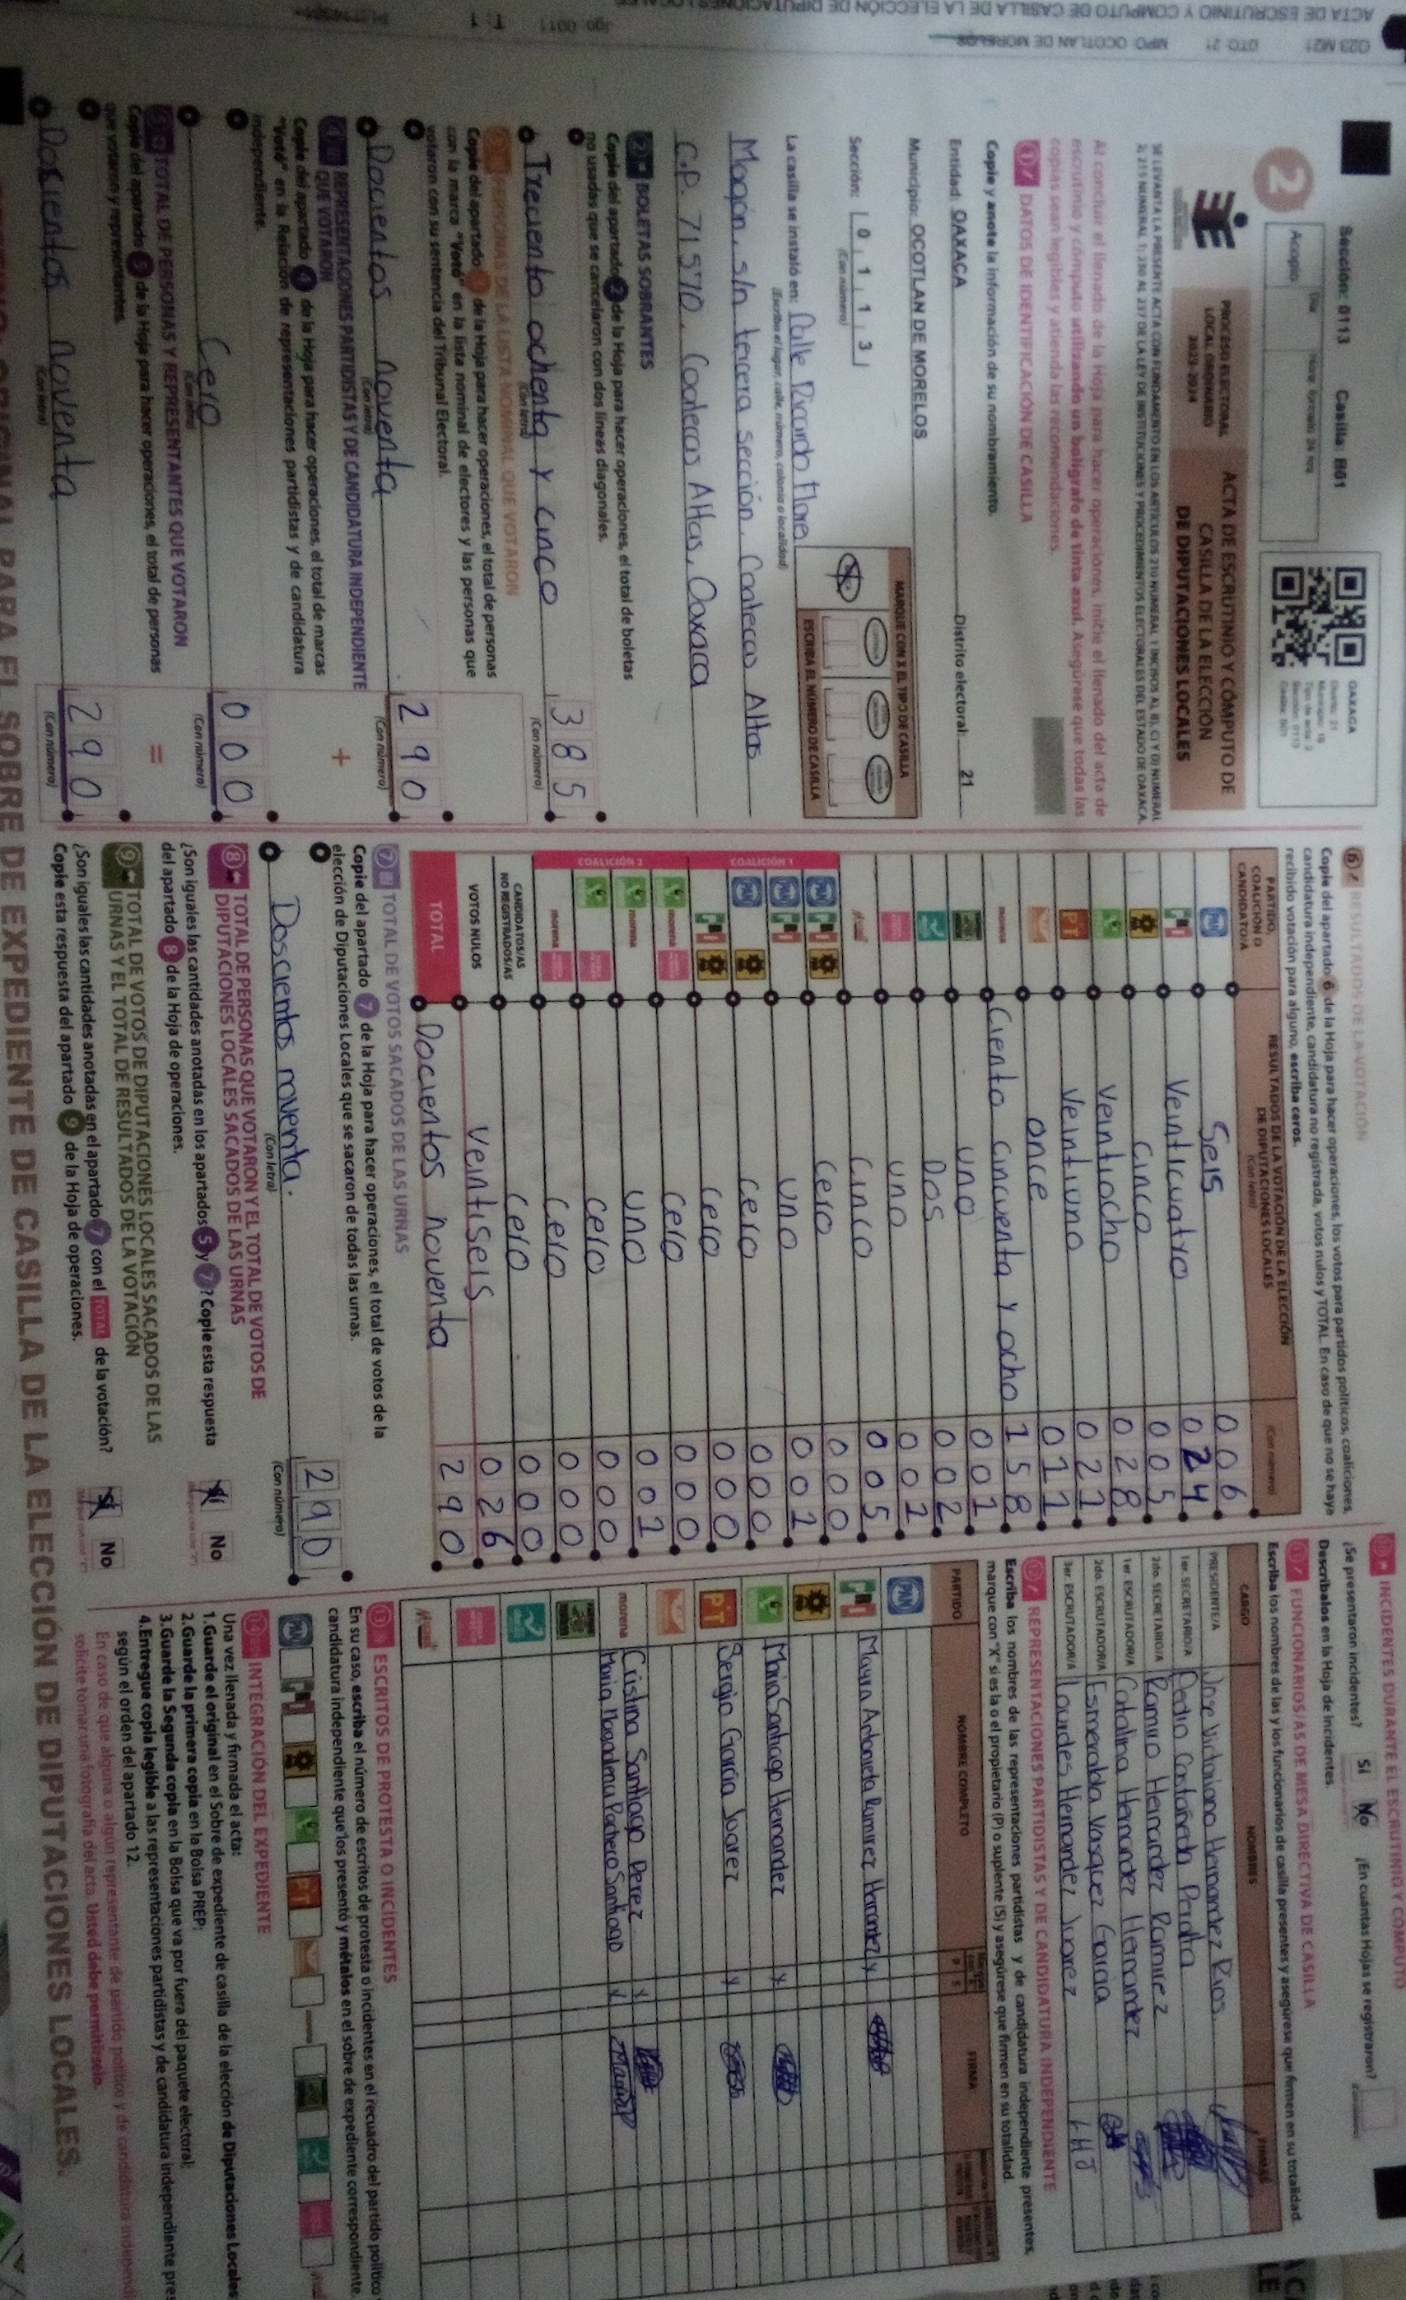 Sección: 0113 Casilla: B01
2
Acopio
PROCESO ELECTORAL
LOCAL ORDINARIO
2023-2024
ACTA DE ESCRUTINIO Y CÓMPUTO DE
CASILLA DE LA ELECCIÓN
DE DIPUTACIONES LOCALES
OAXACA
Al concluir el llenado de la Hoja para hacer operaciones, inicie el llenado del acta de
escrutinio y cómputo utilizando un bolígrafo de tinta azul. Asegúrese que todas las
copias sean legibles y atienda las recomendaciones.
1 DATOS DE IDENTIFICACIÓN DE CASILLA
Copie y anote la información de su nombramiento.
Entidad: OAXACA Distrito electoral: 21
Municipio: OCOTLAN DE MORELOS
Sección: 0113
(Con número)
MARQUE CON X EL TIPO DE CASILLA
ESCRIBA EL NÚMERO DE CASILLA
La casilla se instaló en: Calle Ricardo Flores
(Escriba el lugar: calle, número, colonia o localidad)
Magón, s/n tercera sección, Coatecas Altas
C.P. 71570, Coatecas Altas, Oaxaca
2 BOLETAS SOBRANTES
Copie del apartado 2 de la Hoja para hacer operaciones, el total de boletas
no usadas que se cancelaron con dos líneas diagonales.
Treciento ochenta y cinco 385
(Con letra) (Con número)
3 PERSONAS DE LA LISTA NOMINAL QUE VOTARON
Copie del apartado 3 de la Hoja para hacer operaciones, el total de personas
con la marca "Votó" en la lista nominal de electores y las personas que
votaron con su sentencia del Tribunal Electoral.
Docientos noventa 290
(Con letra) (Con número)
4 REPRESENTACIONES PARTIDISTAS Y DE CANDIDATURA INDEPENDIENTE
QUE VOTARON
+
Copie del apartado 4 de la Hoja para hacer operaciones, el total de marcas
"Votó" en la Relación de representaciones partidistas y de candidatura
independiente.
Cero 000
(Con letra) (Con número)
5 TOTAL DE PERSONAS Y REPRESENTANTES QUE VOTARON
=
Copie del apartado 5 de la Hoja para hacer operaciones, el total de personas
que votaron y representantes.
Docientos noventa 290
(Con letra) (Con número)
6 RESULTADOS DE LA VOTACIÓN
Copie del apartado 6 de la Hoja para hacer operaciones, los votos para partidos políticos, coaliciones,
candidatura independiente, candidatura no registrada, votos nulos y TOTAL. En caso de que no se haya
recibido votación para alguno, escriba ceros.
PARTIDO, COALICIÓN O CANDIDATO/A
RESULTADOS DE LA VOTACIÓN DE LA ELECCIÓN
DE DIPUTACIONES LOCALES
(Con letra) (Con número)
PAN Seis 006
PRI Veinticuatro 024
Cinco 005
Veintiocho 028
PT Veintiuno 021
once 011
morena Ciento cincuenta y ocho 158
uno 001
Dos 002
uno 001
Cinco 005
COALICIÓN 1
Cero 000
uno 001
cero 000
cero 000
COALICIÓN 2
cero 000
uno 001
cero 000
Cero 000
CANDIDATOS/AS NO REGISTRADOS/AS cero 000
VOTOS NULOS veintiseis 026
TOTAL Docientos noventa 290
7 TOTAL DE VOTOS SACADOS DE LAS URNAS
Copie del apartado 7 de la Hoja para hacer operaciones, el total de votos de la
elección de Diputaciones Locales que se sacaron de todas las urnas.
Doscientos noventa. 290
(Con letra) (Con número)
8 TOTAL DE PERSONAS QUE VOTARON Y EL TOTAL DE VOTOS DE
DIPUTACIONES LOCALES SACADOS DE LAS URNAS
¿Son iguales las cantidades anotadas en los apartados 5 y 7? Copie esta respuesta
del apartado 8 de la Hoja de operaciones.
Sí No
9 TOTAL DE VOTOS DE DIPUTACIONES LOCALES SACADOS DE LAS
URNAS Y EL TOTAL DE RESULTADOS DE LA VOTACIÓN
¿Son iguales las cantidades anotadas en el apartado 7 con el TOTAL de la votación?
Copie esta respuesta del apartado 9 de la Hoja de operaciones.
Sí No
INCIDENTES DURANTE EL ESCRUTINIO Y CÓMPUTO
¿Se presentaron incidentes? Sí No ¿En cuántas Hojas se registraron?
Descríbalos en la Hoja de Incidentes.
FUNCIONARIOS/AS DE MESA DIRECTIVA DE CASILLA
Escriba los nombres de las y los funcionarios de casilla presentes y asegúrese que firmen en su totalidad.
CARGO NOMBRES FIRMAS
PRESIDENTE/A Jose Victoriano Hernandez Rios
1er. SECRETARIO/A Pedro Castañeda Peralta
2do. SECRETARIO/A Ramiro Hernandez Ramirez
1er. ESCRUTADOR/A Catalina Hernander Hernandez
2do. ESCRUTADOR/A Esmeralda Vasquez Garcia
3er. ESCRUTADOR/A Lourdes Hernandez Juarez LHJ
REPRESENTACIONES PARTIDISTAS Y DE CANDIDATURA INDEPENDIENTE
Escriba los nombres de las representaciones partidistas y de candidatura independiente presentes,
marque con "X" si es la o el propietario (P) o suplente (S) y asegúrese que firmen en su totalidad.
PARTIDO NOMBRE COMPLETO FIRMA
PAN
PRI Mayra Antonieta Ramirez Hernandez x
Maria Santiago Hernandez x
PT Sergio Garcia Juarez x
morena Cristina Santiago Perez x
Maria Magdalena Pacheco Santiago x
13 ESCRITOS DE PROTESTA O INCIDENTES
En su caso, escriba el número de escritos de protesta o incidentes en el recuadro del partido político
candidatura independiente que los presentó y métalos en el sobre de expediente correspondiente.
14 INTEGRACIÓN DEL EXPEDIENTE
Una vez llenada y firmada el acta:
1.Guarde el original en el Sobre de expediente de casilla de la elección de Diputaciones Locales
2.Guarde la primera copia en la Bolsa PREP;
3.Guarde la Segunda copia en la Bolsa que va por fuera del paquete electoral;
4.Entregue copia legible a las representaciones partidistas y de candidatura independiente pres
según el orden del apartado 12.
En caso de que alguna o algún representante de partido político y de candidatura independi
solicite tomar una fotografía del acta. Usted debe permitírselo.
ORIGINAL PARA EL SOBRE DE EXPEDIENTE DE CASILLA DE LA ELECCIÓN DE DIPUTACIONES LOCALES.